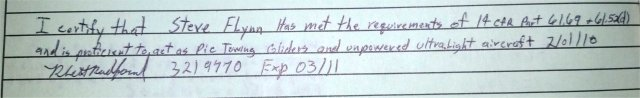 I certify that Steve Flynn Has met the requirements of 14 CFR Part 61.69 + 61.52(d)
and is proficient to act as Pic Towing Gliders and unpowered ultralight aircraft 2/01/10
3219770 Exp 03/11